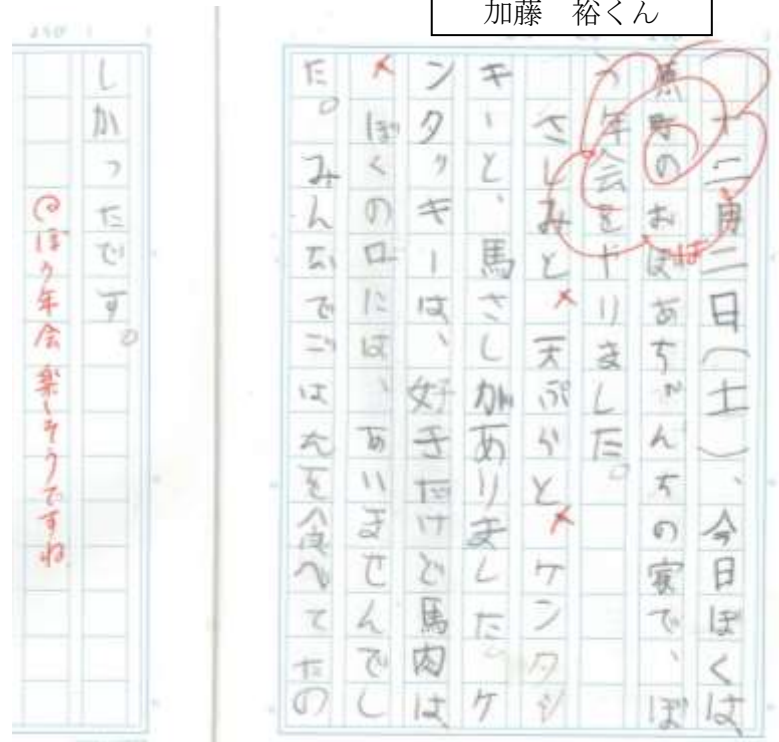 加藤　裕くん
十二月二日(土)、今日ぼくは、
原町のおぼあちゃんちの家で、ぼ
ば
う年会をやりました。
さしみと 天ぷらと ケンタッ
キーと、馬さしがありました。ケ
ンタッキーは、好きだけど馬肉は、
ぼくの口には、あいませんでし
た。みんなでごはんを食べてたの
しかったです。
ぼう年会楽しそうですね